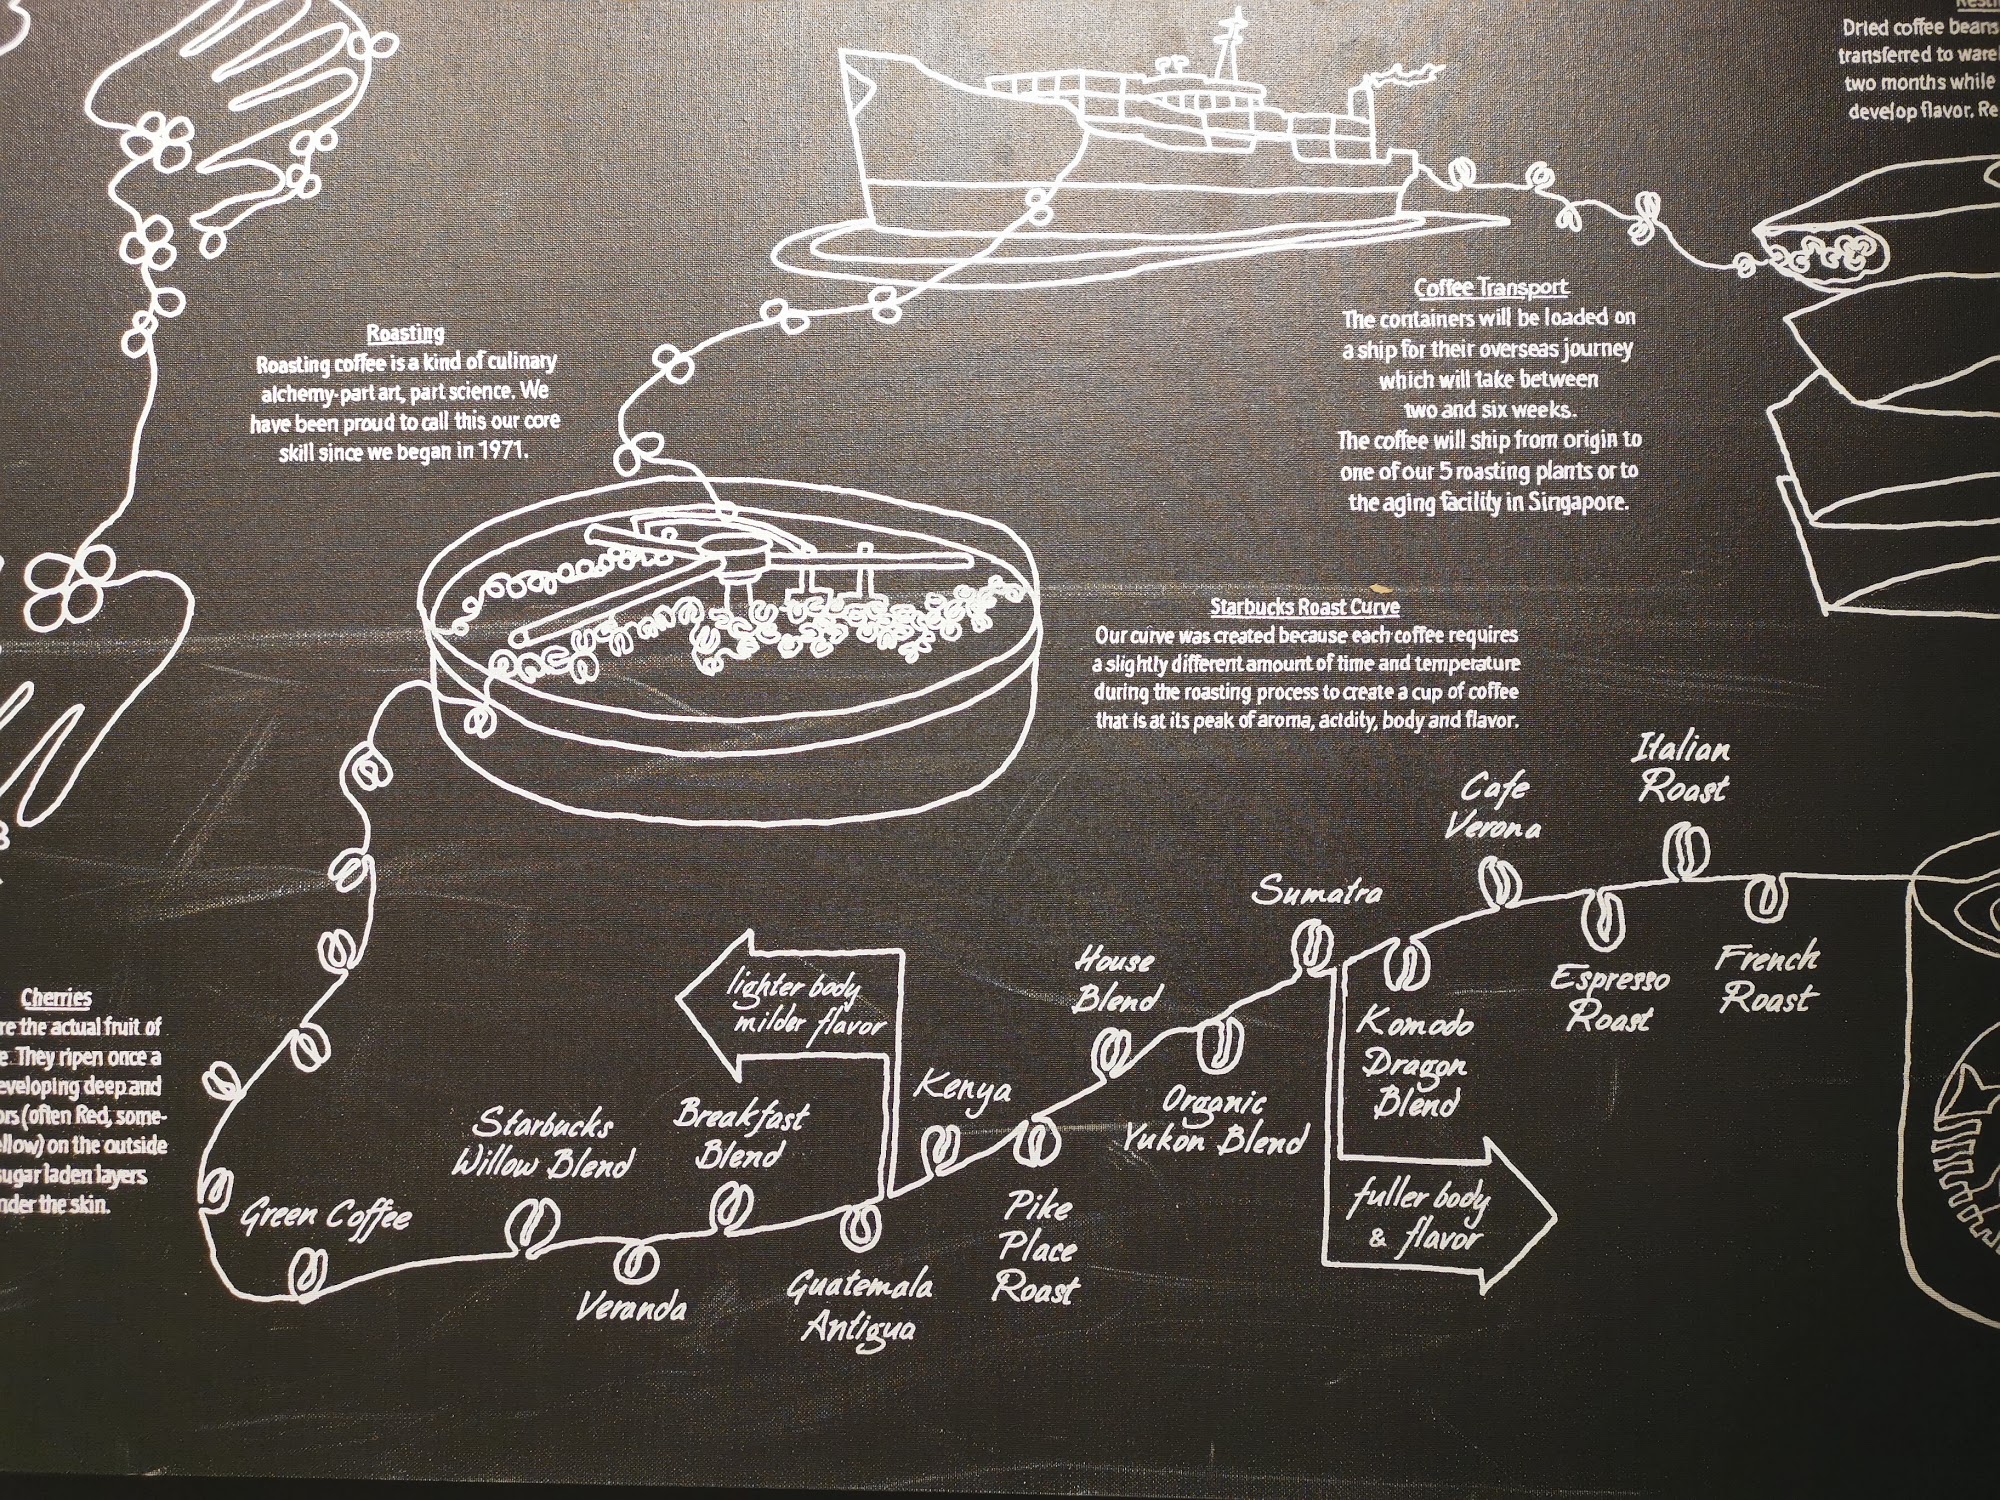 Dried coffee beans
transferred to
two months while
develop flavor. Re
Coffee Transport
The containers will be loaded on
a ship for their overseas journey
which will take between
two and six weeks.
The coffee will ship from origin to
one of our 5 roasting plants or to
the aging facility in Singapore.
Roasting
Roasting coffee is a kind of culinary
alchemy-part art, part science. We
have been proud to call this our core
skill since we began in 1971.
Starbucks Roast Curve
Our curve was created because each coffee requires
a slightly different amount of time and temperature
during the roasting process to create a cup of coffee
that is at its peak of aroma, acidity, body and flavor.
Cherries
re the actual fruit of
e. They ripen once a
eveloping deep and
ors (often Red, some-
ellow) on the outside
sugar laden layers
nder the skin.
Green Coffee
Starbucks
Willow Blend
Veranda
Breakfast
Blend
Guatemala
Antigua
lighter body
milder flavor
Kenya
Pike
Place
Roast
House
Blend
Organic
Yukon Blend
Sumatra
Komodo
Dragon
Blend
fuller body
& flavor
Cafe
Verona
Espresso
Roast
Italian
Roast
French
Roast